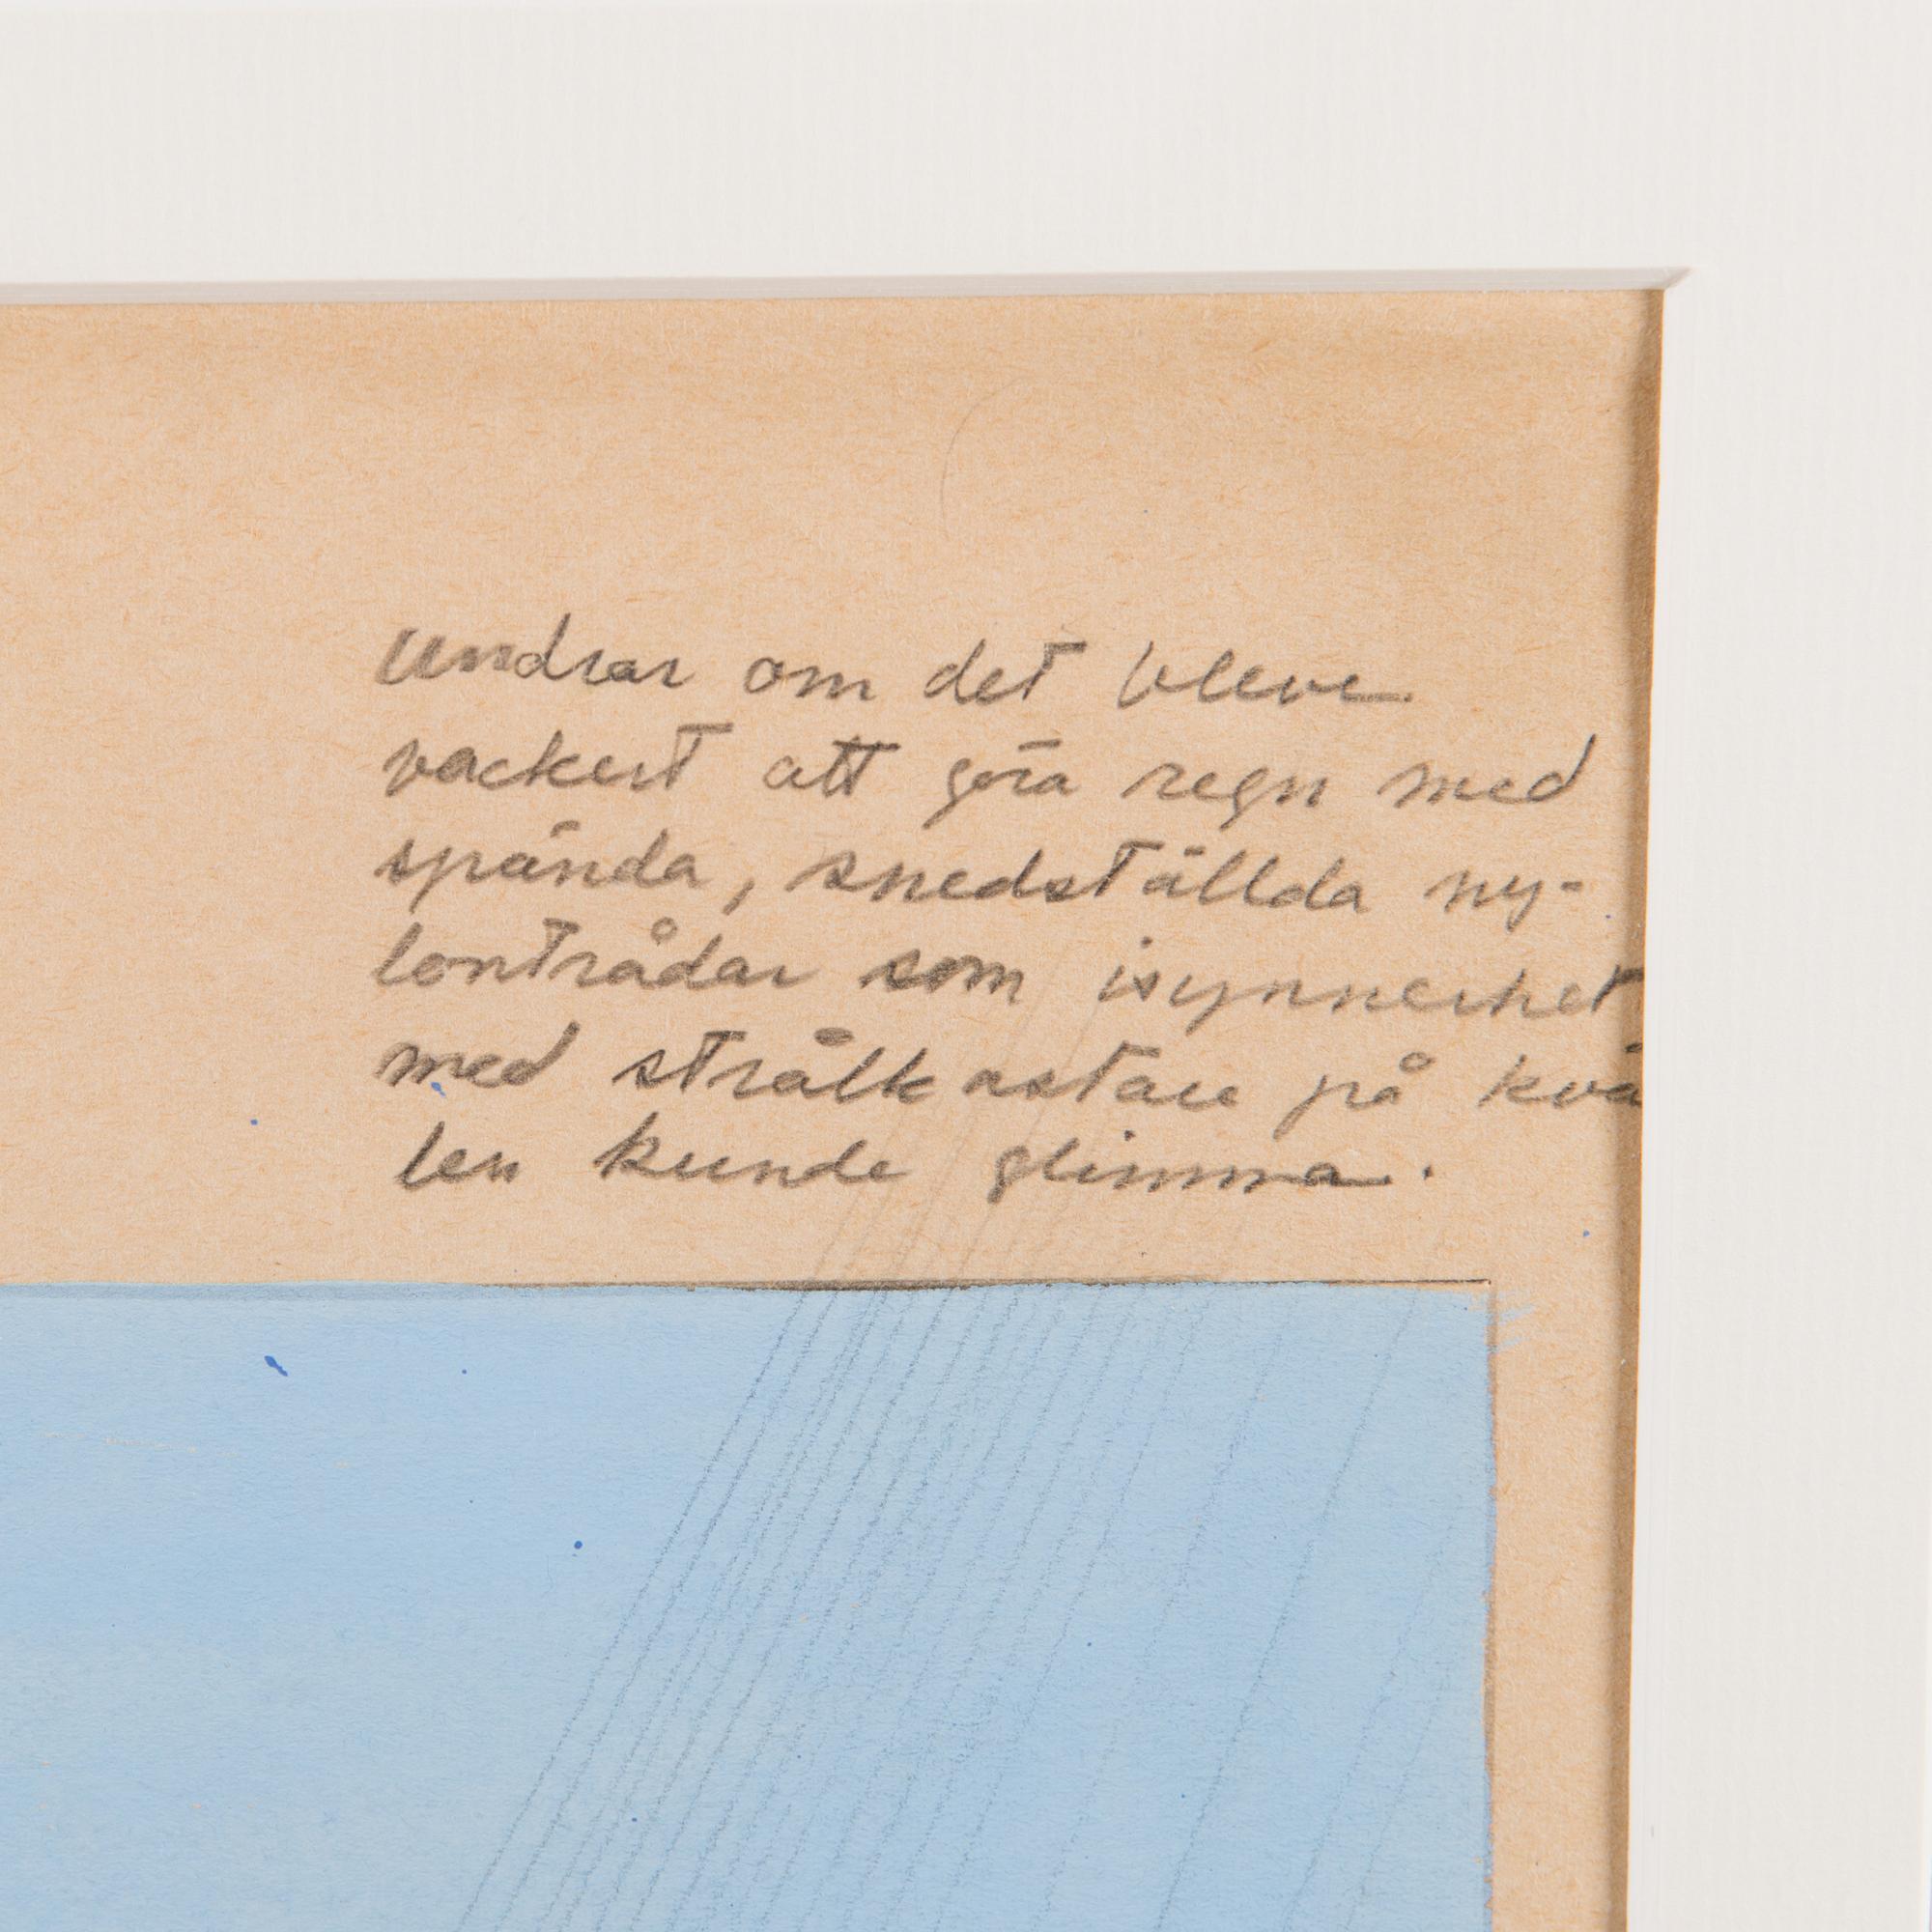 Undrar om det bleve
vackert att göra regn med
spända, snedställda ny-
lontrådar som isynnerhet
med strålkastare på kvä
len kunde glimma.